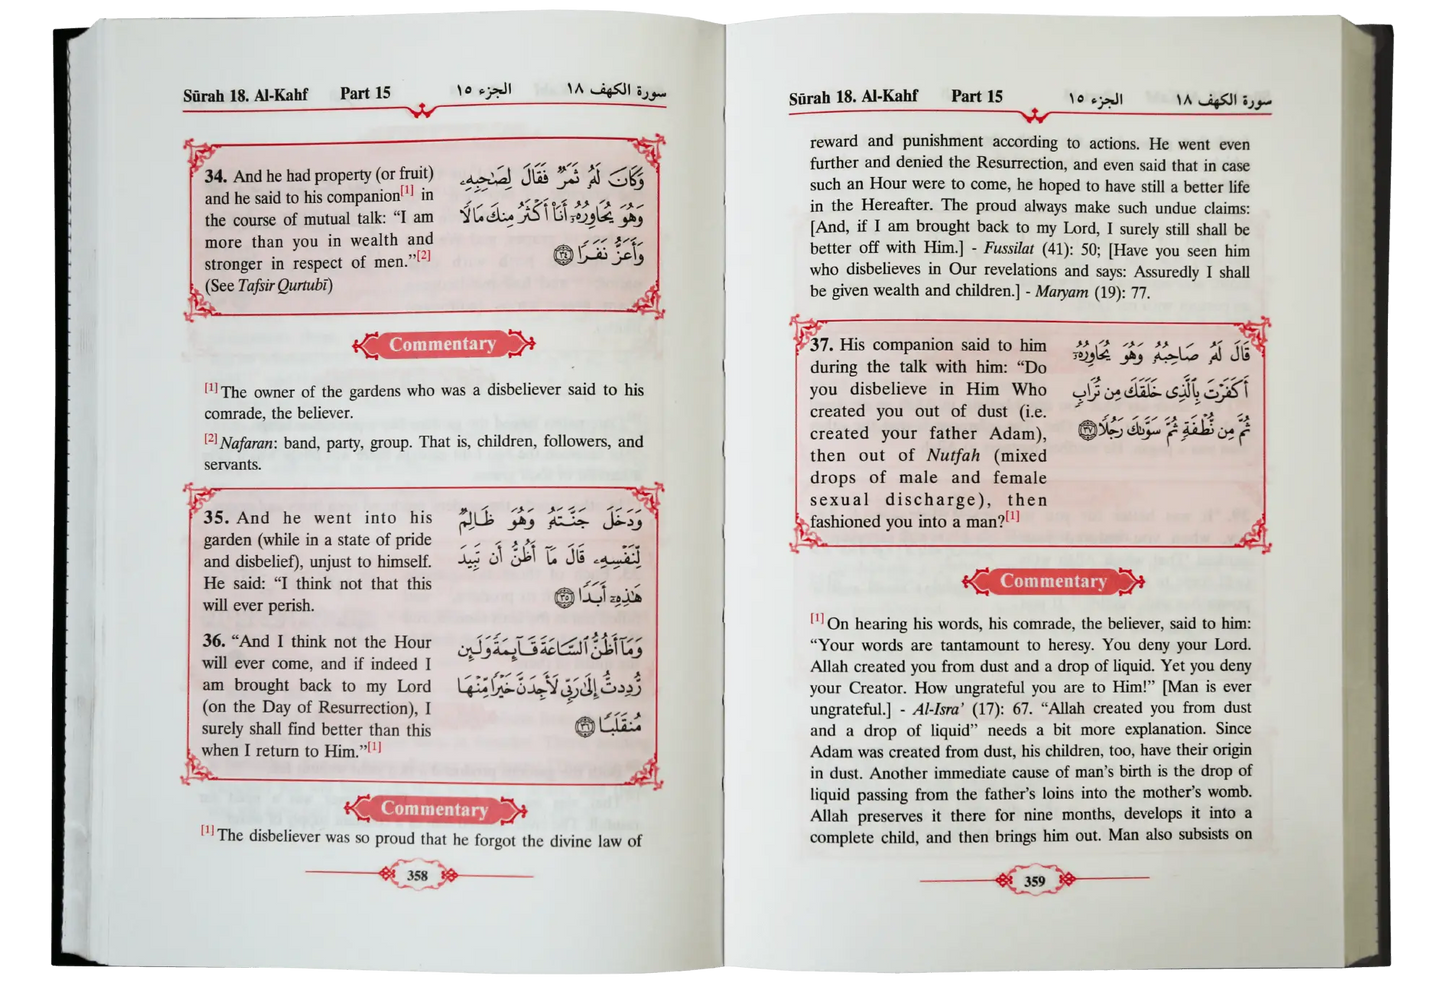 Sūrah 18. Al-Kahf Part 15 الجزء ١٥ سورة الكهف ١٨
34. And he had property (or fruit)
and he said to his companion[1] in
the course of mutual talk: “I am
more than you in wealth and
stronger in respect of men.”[2]
(See Tafsir Qurtubī)
وَكَانَ لَهُۥ ثَمَرٌ فَقَالَ لِصَٰحِبِهِۦ
وَهُوَ يُحَاوِرُهُۥٓ أَنَا۠ أَكْثَرُ مِنكَ مَالًا
وَأَعَزُّ نَفَرًا ﴿٣٤﴾
Commentary
[1] The owner of the gardens who was a disbeliever said to his
comrade, the believer.
[2] Nafaran: band, party, group. That is, children, followers, and
servants.
35. And he went into his
garden (while in a state of pride
and disbelief), unjust to himself.
He said: “I think not that this
will ever perish.
وَدَخَلَ جَنَّتَهُۥ وَهُوَ ظَالِمٌ
لِّنَفْسِهِۦ قَالَ مَآ أَظُنُّ أَن تَبِيدَ
هَٰذِهِۦٓ أَبَدًا ﴿٣٥﴾
36. “And I think not the Hour
will ever come, and if indeed I
am brought back to my Lord
(on the Day of Resurrection), I
surely shall find better than this
when I return to Him.”[1]
وَمَآ أَظُنُّ ٱلسَّاعَةَ قَآئِمَةً وَلَئِن
رُّدِدتُّ إِلَىٰ رَبِّى لَأَجِدَنَّ خَيْرًا مِّنْهَا
مُنقَلَبًا ﴿٣٦﴾
Commentary
[1] The disbeliever was so proud that he forgot the divine law of
358
Sūrah 18. Al-Kahf Part 15 الجزء ١٥ سورة الكهف ١٨
reward and punishment according to actions. He went even
further and denied the Resurrection, and even said that in case
such an Hour were to come, he hoped to have still a better life
in the Hereafter. The proud always make such undue claims:
[And, if I am brought back to my Lord, I surely still shall be
better off with Him.] - Fussilat (41): 50; [Have you seen him
who disbelieves in Our revelations and says: Assuredly I shall
be given wealth and children.] - Maryam (19): 77.
37. His companion said to him
during the talk with him: “Do
you disbelieve in Him Who
created you out of dust (i.e.
created your father Adam),
then out of Nutfah (mixed
drops of male and female
sexual discharge), then
fashioned you into a man?[1]
قَالَ لَهُۥ صَاحِبُهُۥ وَهُوَ يُحَاوِرُهُۥٓ
أَكَفَرْتَ بِٱلَّذِى خَلَقَكَ مِن تُرَابٍ
ثُمَّ مِن نُّطْفَةٍ ثُمَّ سَوَّىٰكَ رَجُلًا ﴿٣٧﴾
Commentary
[1] On hearing his words, his comrade, the believer, said to him:
“Your words are tantamount to heresy. You deny your Lord.
Allah created you from dust and a drop of liquid. Yet you deny
your Creator. How ungrateful you are to Him!” [Man is ever
ungrateful.] - Al-Isra’ (17): 67. “Allah created you from dust
and a drop of liquid” needs a bit more explanation. Since
Adam was created from dust, his children, too, have their origin
in dust. Another immediate cause of man’s birth is the drop of
liquid passing from the father’s loins into the mother’s womb.
Allah preserves it there for nine months, develops it into a
complete child, and then brings him out. Man also subsists on
359